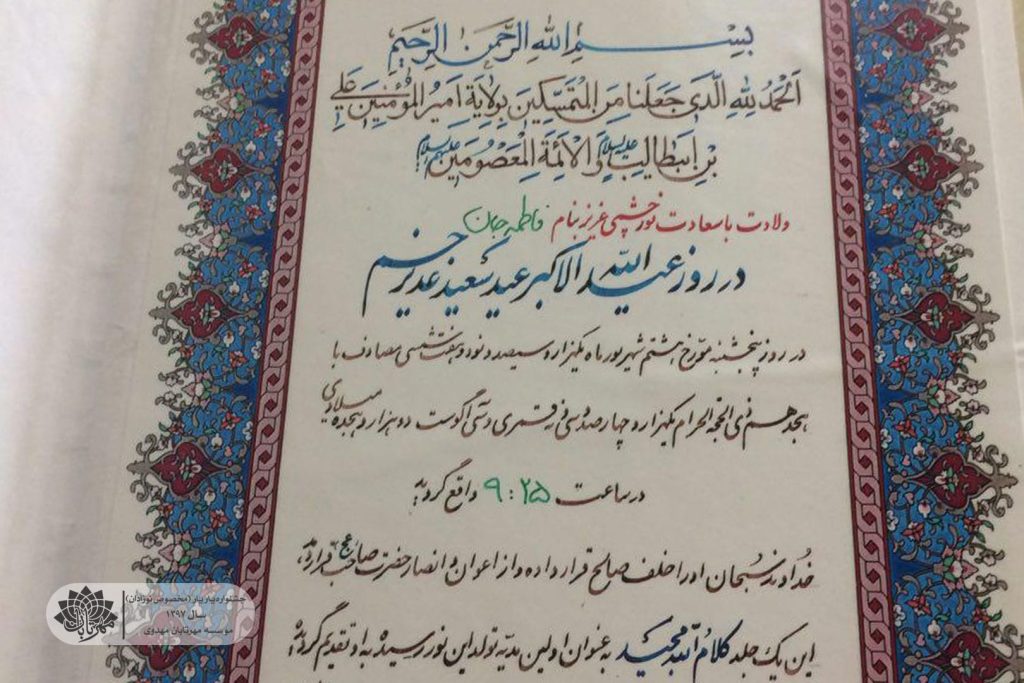 بِسْمِ اللهِ الرَّحْمنِ الرَّحيمِ
اَلْحَمْدُ لِلّهِ الَّذى جَعَلَنا مِنَ الْمُتَمَسِّكينَ بِوِلايَةِ اَميرِ الْمُؤْمِنينَ عَلِىِّ
بْنِ اَبيطالِبٍ عليه‌السلام وَالْاَئِمَّةِ الْمَعْصُومينَ عليهم‌السلام
ولادت با سعادت نور چشمی عزیز بنام فاطمه جان
در روز عید الله الاکبر عید سعید غدیر خم
در روز پنجشنبه مورخ هشتم شهریور ماه یکهزار و سیصد و نود و هفت شمسی مصادف با
هجدهم ذی الحجة الحرام یکهزار و چهارصد و سی و نه قمری و سی آگوست دو هزار و هجده میلادی
در ساعت ۹:۲۵ واقع گردید
خداوند سبحان او را خلف صالح قرار داده و از اعوان و انصار حضرت صاحب عج قرار دهد
این یک جلد کلام الله مجید به عنوان اولین هدیه تولد این نورسیده به او تقدیم گردیده
جشنواره یار یار (مخصوص نوزادان)
سال ۱۳۹۷
موسسه مهرتابان مهدوی
مهرتابان